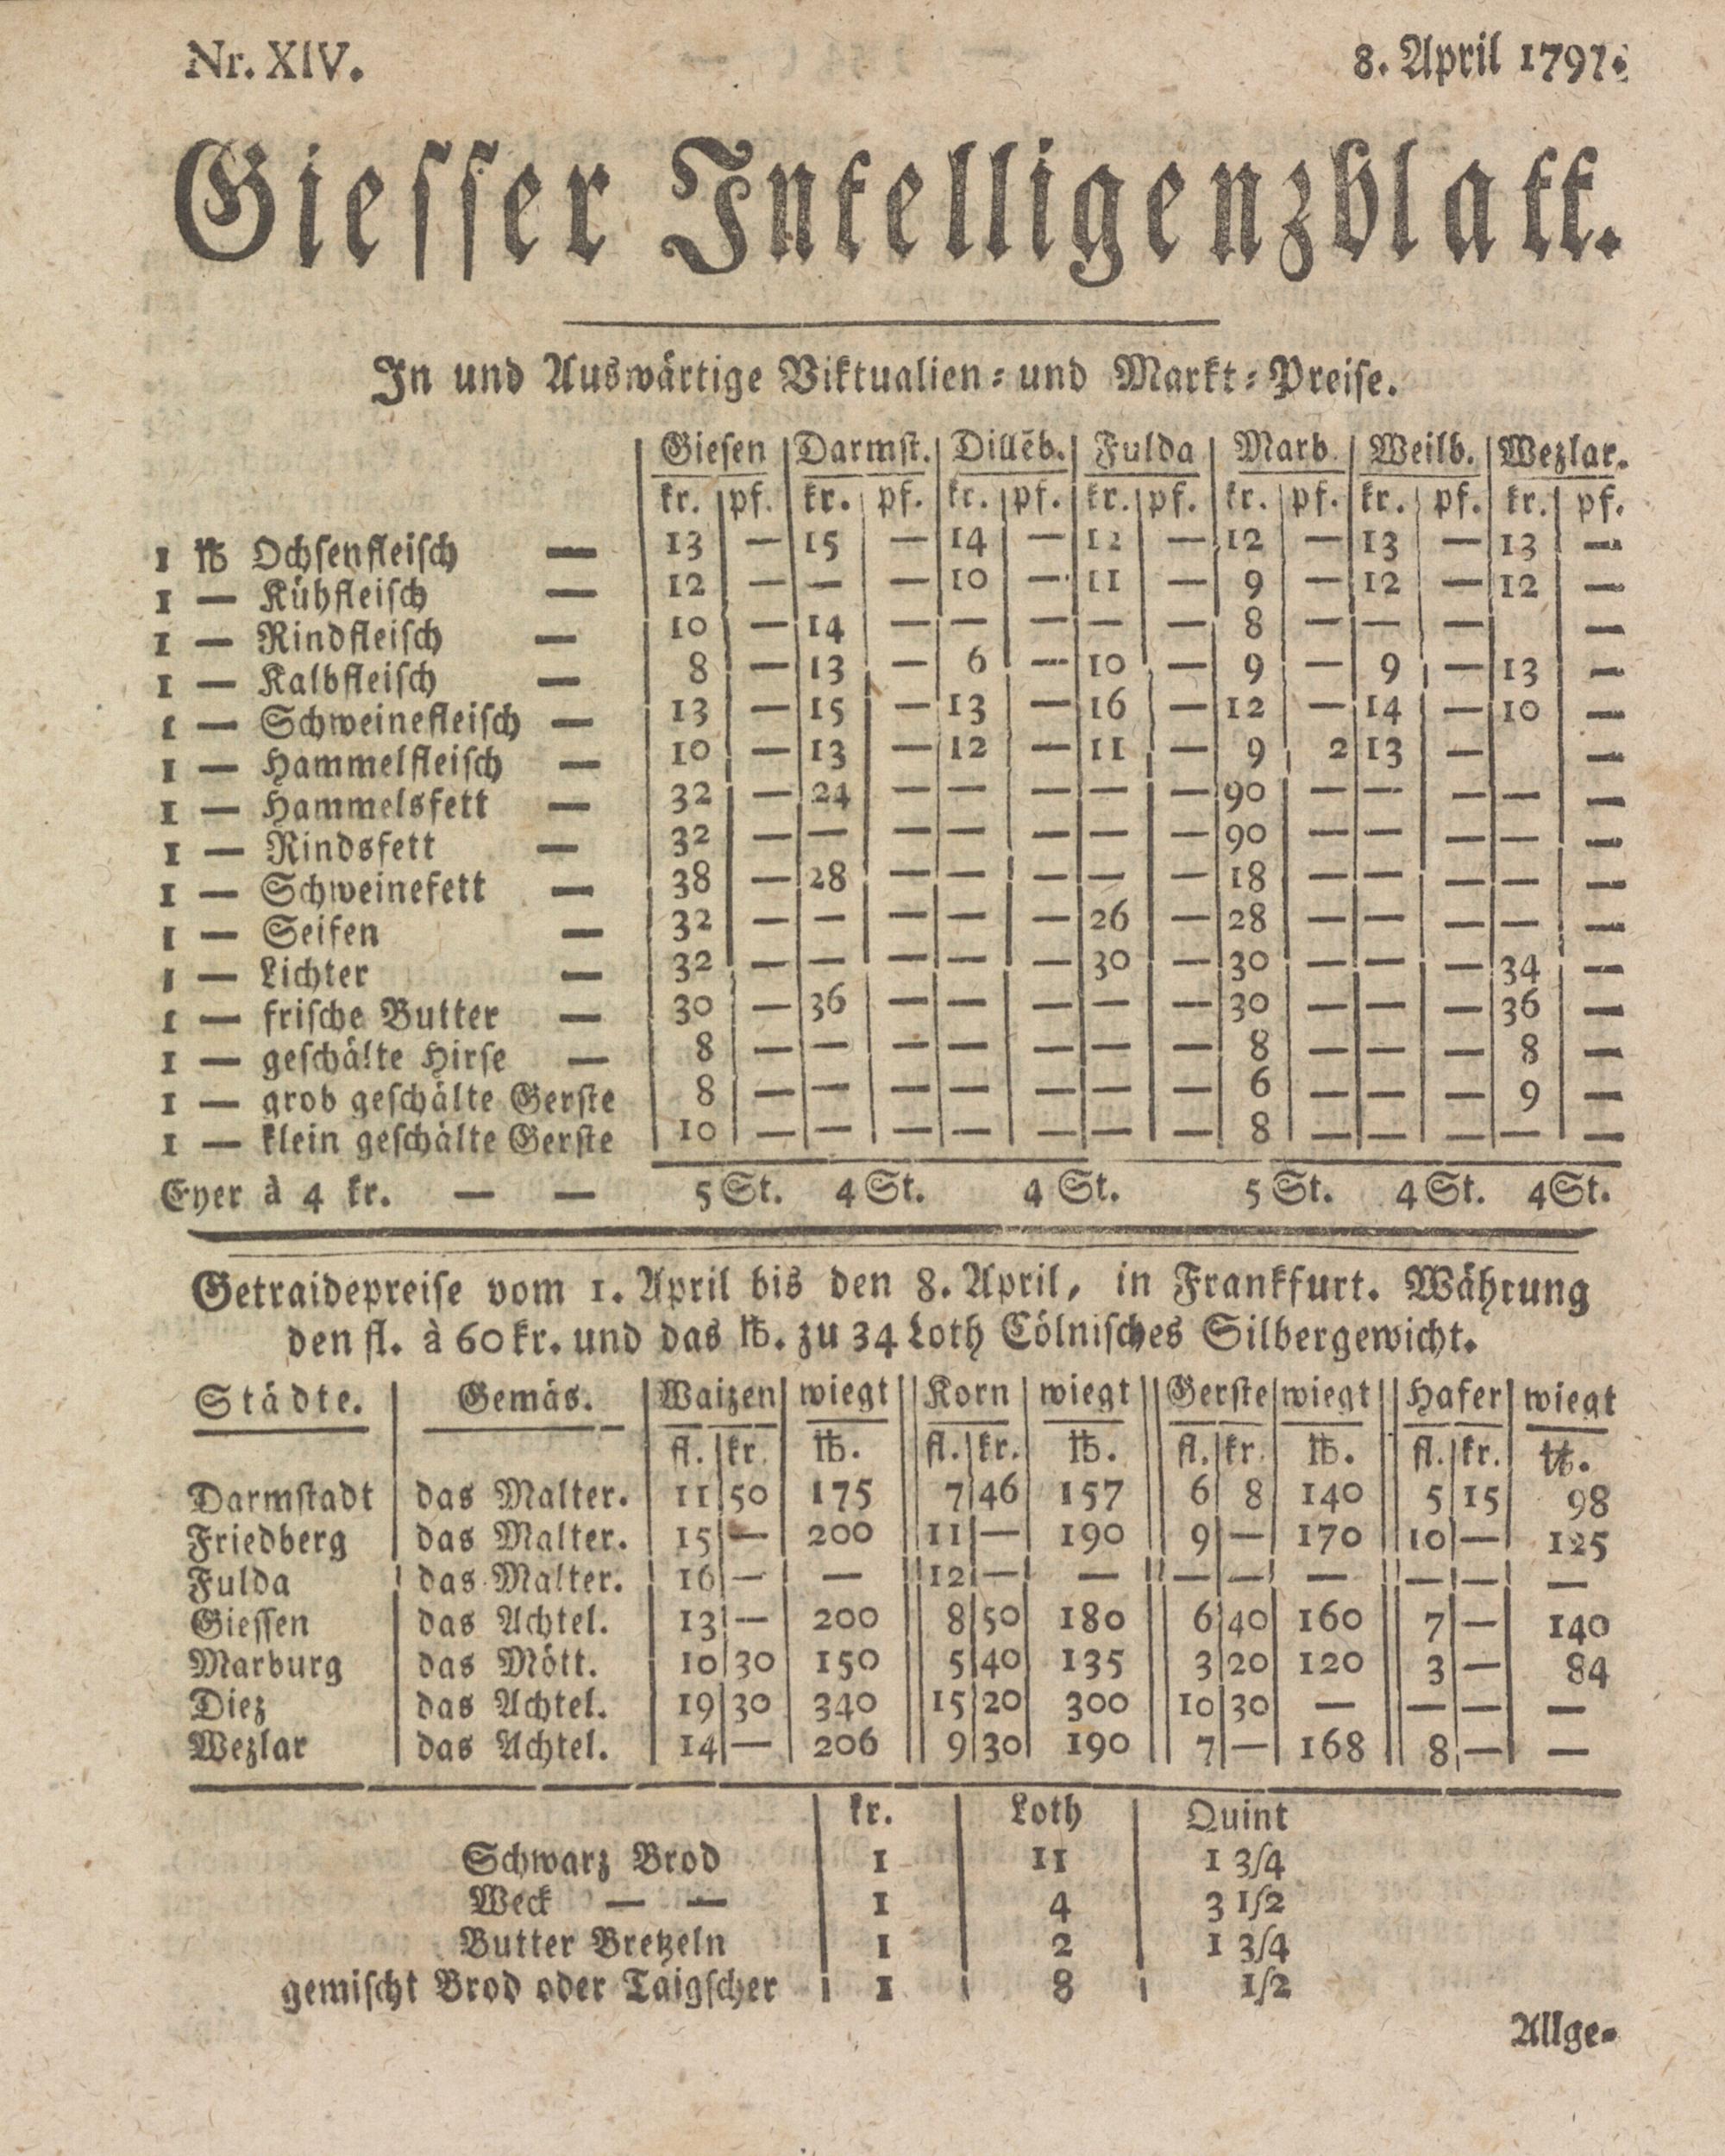 Nr. XIV.
8. April 1797.
Giesser Intelligenzblatt.
In und Auswärtige Viktualien- und Markt-Preise.
Giesen Darmst. Dillēb. Fulda Marb. Weilb. Wezlar.
kr. pf. kr. pf. kr. pf. kr. pf. kr. pf. kr. pf. kr. pf.
1 ℔ Ochsenfleisch — 13 — 15 — 14 — 12 — 12 — 13 — 13 —
1 — Kühfleisch — 12 — — — 10 — 11 — 9 — 12 — 12 —
1 — Rindfleisch — 10 — 14 — — — — — 8 — — — —
1 — Kalbfleisch — 8 — 13 — 6 — 10 — 9 — 9 — 13 —
1 — Schweinefleisch — 13 — 15 — 13 — 16 — 12 — 14 — 10 —
1 — Hammelfleisch — 10 — 13 — 12 — 11 — 9 2 13 — —
1 — Hammelsfett — 32 — 24 — — — — — 90 — — — — —
1 — Rindsfett — 32 — — — — — — — 90 — — — — —
1 — Schweinefett — 38 — 28 — — — — — 18 — — — — —
1 — Seifen — 32 — — — — — 26 — 28 — — — — —
1 — Lichter — 32 — — — — — 30 — 30 — — — 34 —
1 — frische Butter — 30 — 36 — — — — — 30 — — — 36 —
1 — geschälte Hirse — 8 — — — — — — — 8 — — — 8 —
1 — grob geschälte Gerste 8 — — — — — — — 6 — — — 9 —
1 — klein geschälte Gerste 10 — — — — — — — 8 — — — — —
Eyer à 4 kr. — — 5 St. 4 St. 4 St. 5 St. 4 St. 4 St.
Getraidepreise vom 1. April bis den 8. April, in Frankfurt. Währung
den fl. à 60 kr. und das ℔. zu 34 Loth Cölnisches Silbergewicht.
Städte. Gemäs. Waizen wiegt Korn wiegt Gerste wiegt Hafer wiegt
fl. kr. ℔. fl. kr. ℔. fl. kr. ℔. fl. kr. ℔.
Darmstadt das Malter. 11 50 175 7 46 157 6 8 140 5 15 98
Friedberg das Malter. 15 — 200 11 — 190 9 — 170 10 — 125
Fulda das Malter. 16 — — 12 — — — — — — — —
Giessen das Achtel. 13 — 200 8 50 180 6 40 160 7 — 140
Marburg das Mött. 10 30 150 5 40 135 3 20 120 3 — 84
Diez das Achtel. 19 30 340 15 20 300 10 30 — — — —
Wezlar das Achtel. 14 — 206 9 30 190 7 — 168 8 — —
kr. Loth Quint
Schwarz Brod 1 11 1 3/4
Weck — — 1 4 3 1/2
Butter Bretzeln 1 2 1 3/4
gemischt Brod oder Taigscher 1 8 1/2
Allge-